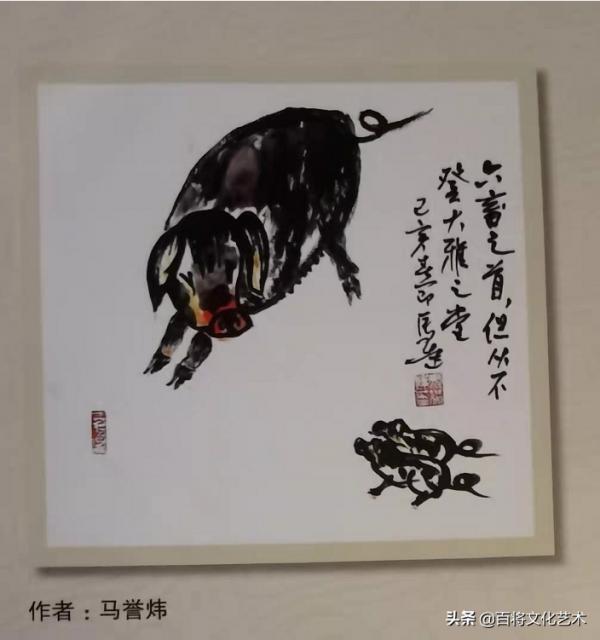 六畜之首，但从不
登大雅之堂
己亥春节马
作者：马誉炜
头条 @百将文化艺术